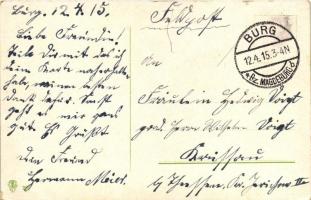 Burg, 12.4.15.
Liebe Freundin!
Teile Dir mit daß ich
Dein Karte
habe, meinen besten
Dank dafür. Sonst
geht es mir ganz
gut. Es Grüßt
Dein Freund
Hermann
Feldpost
BURG
12.4.15.3-4N
* (Bz. MAGDEBURG)
An
Fräulein Hedwig Voigt
Herrn Wilhelm Voigt
Krüssau
b/ Theessen, Kr. Jerichow